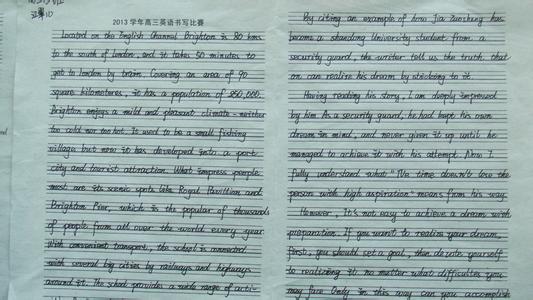 2013学年高三英语书写比赛
Located on the English Channel, Brighton is 80 kms
to the south of London, and it takes 50 minutes to
get to London by train. Covering an area of 90
square kilometeres, it has a population of 250,000.
Brighton enjoys a mild and pleasant climate - neither
too cold nor too hot. It used to be a small fishing
village but now it has developed into a port
city and tourist attraction. What impress people
most are its scenic spots like Royal Pavillion and
Brighton Pier, which is the popular of thousands
of people from all over the world every year
With convenient transport, the school is connected
with several big cities by railways and highways
around it. The school provides a wide range of acti-
By citing an example of how Jia Zuosheng has
become a shandong University student from a
security guard, the writer tell us the truth that
on can realize his dream by sticking to it
Having reading his story, I am deeply impressed
by him. As a security guard, he had kept his own
dream in mind, and never given it up until he
managed to achieve it with his attempt. Now I
fully understand what "The time doesn't lose the
person with high aspiration" means from his way.
However, It's not easy to achieve a dream with
preparation. If you want to realize your dream,
first, you should set a goal, then devote yourself
to realizing it no matter what difficulties you
may face. Only in this way can you accomplish